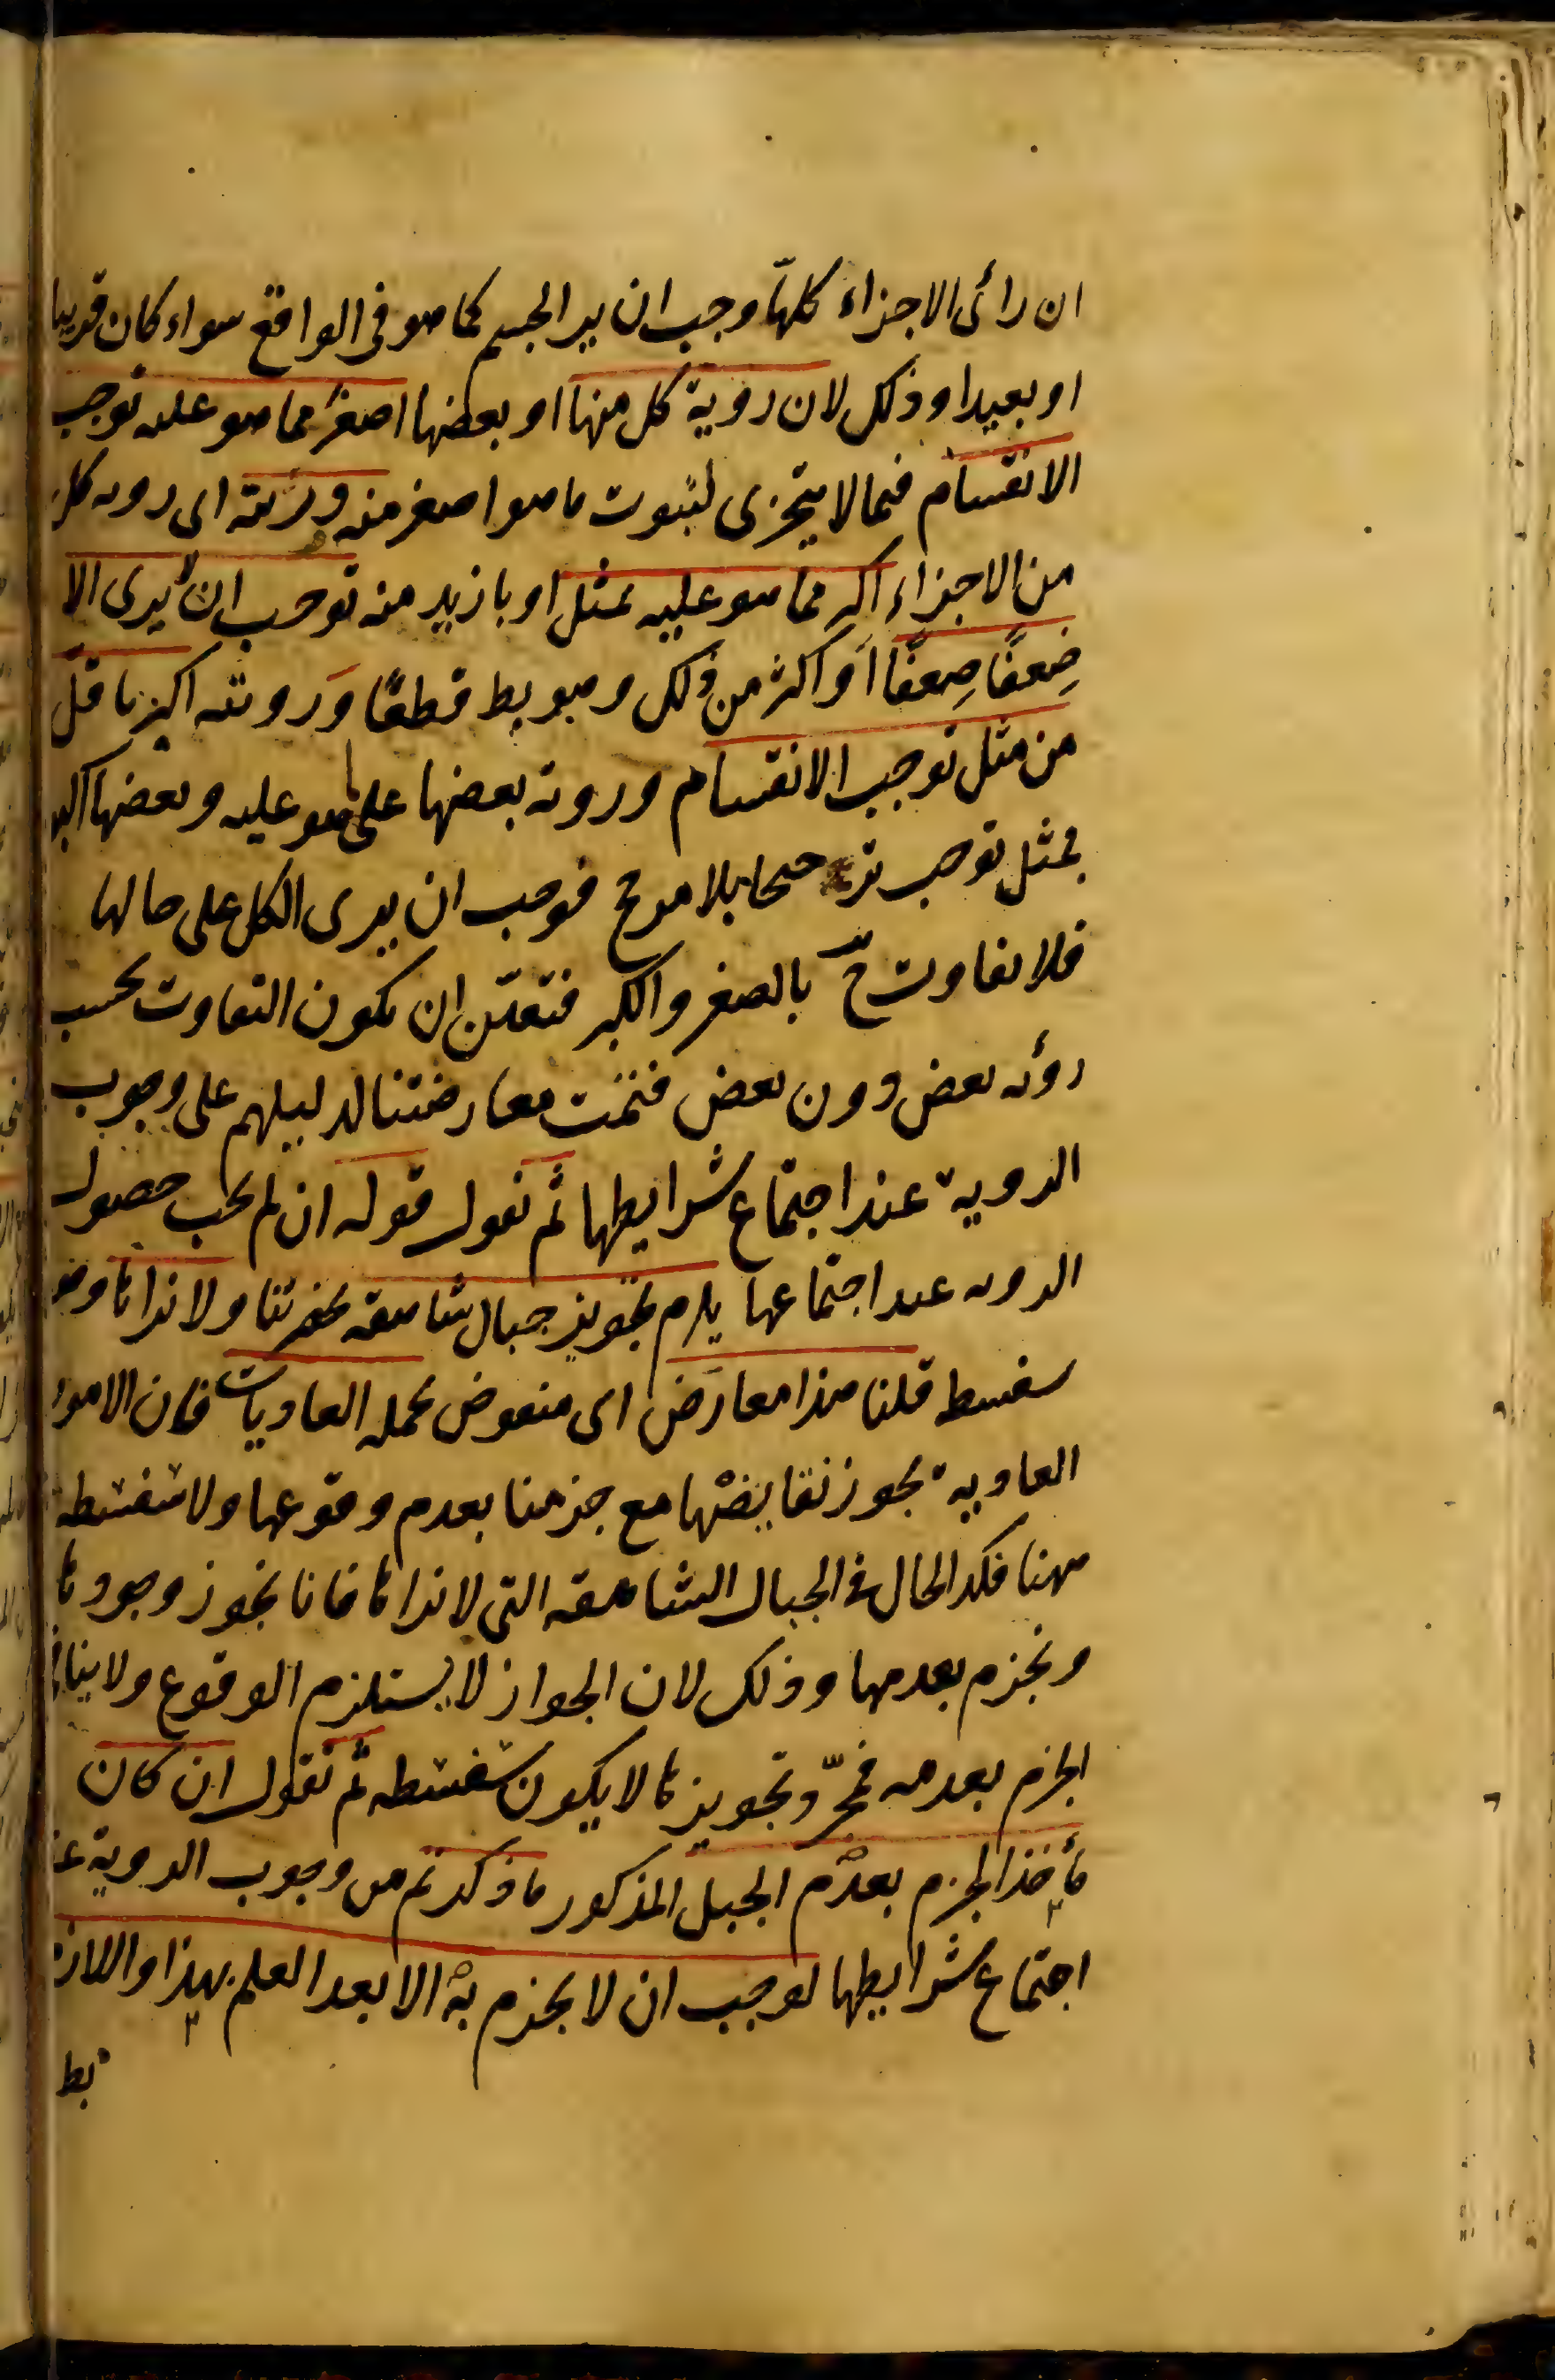 ان رأى الاجزاء كلها وجب ان يرى الجسم كما هو فى الواقع سواء كان قريبا
او بعيدا وذلك لان روية كل منها او بعضها اصغر مما هو عليه توجب
الانقسام فيما لا يتجزى لثبوت ما هو اصغر منه ورؤيته اى رويه كل
من الاجزاء اكبر مما هو عليه بمثل او بازيد منه توجب ان يرى الا
ضِعفًا ضِعفًا او اكثر من ذلك وهو بط قطعًا ورويته اكبر باقل
من مثل توجب الانقسام ورويه بعضها على ما هو عليه وبعضها اكبر
بمثل توجب ترجيحا بلا مرجح فوجب ان يرى الكل على حالها
فلا تفاوت ح بالصغر والكبر فتعيّن ان يكون التفاوت بحسب
رؤيه بعض دون بعض فتمّت معارضتنا لدليلهم على وجوب
الروية عند اجتماع شرايطها ثم نقول قوله ان لم يجب حصول
الرويه عند اجتماعها يلزم تجويز جبال شاهقه بحضرتنا ولا نراها وهو
سفسطه قلنا هذا معارض اى منقوض بجمله العاديات فان الامور
العادية يجوز نقايضها مع جزمنا بعدم وقوعها ولا سفسطه
ههنا فكذا الحال فى الجبال الشاهقه التى لا نراها فانا نجوز وجودها
ونجزم بعدمها وذلك لان الجواز لا يستلزم الوقوع ولا ينافى
الجزم بعدمه فمجرّد تجويزها لا يكون سفسطه ثم نقول ان كان
مأخذ الجزم بعدم الجبل المذكور ما ذكرتم من وجوب الروية عند
اجتماع شرايطها لوجب ان لا نجزم به الا بعد العلم بهذا واللازم
بط